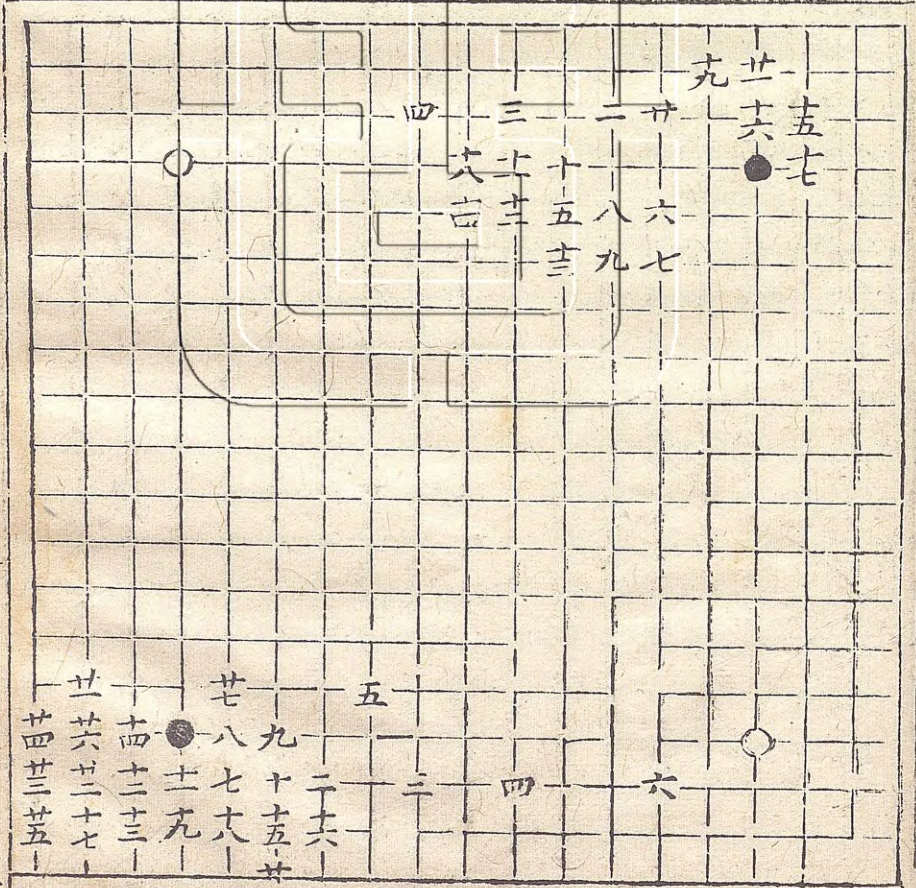 九 廿一
四 三 二 廿 十六 十五
十八 十一 十 十七
十四 十二 五 八 六
十三 九 七
廿一 廿七 五
廿四 廿六 十四 八 九
廿三 廿二 十二 十一 七 十 二 三 四 六
廿五 十七 十三 十九 十八 十五 十六
廿